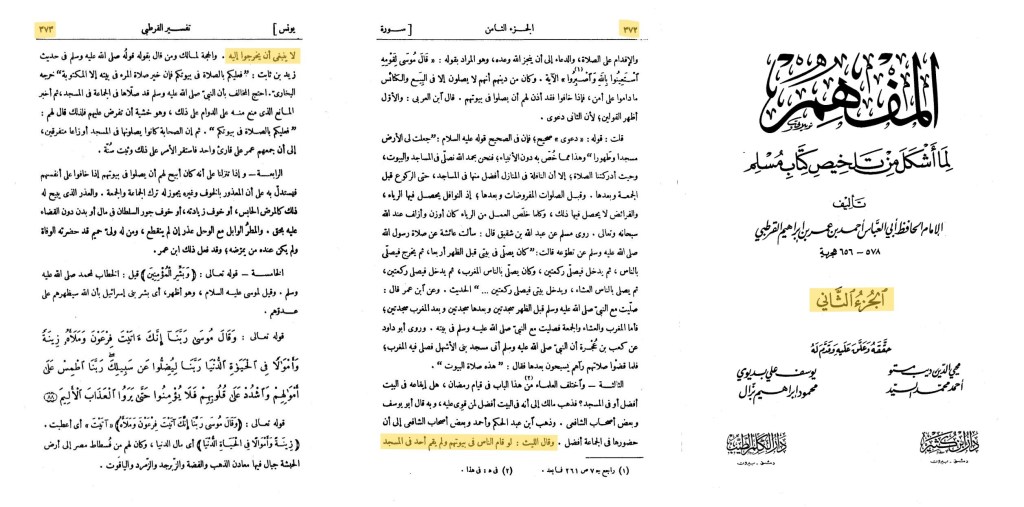 المفهم
لما أشكل من تلخيص كتاب مسلم
تأليف
الإمام الحافظ أبي العباس أحمد بن عمر بن إبراهيم القرطبي
٥٧٨ - ٦٥٦ هجرية
الجزء الثاني
حققه وعلق عليه وقدم له
محيي الدين ديب مستو يوسف علي بديوي
أحمد محمد السيد محمود إبراهيم بزال
دار ابن كثير
دمشق - بيروت
دار الكلم الطيب
دمشق - بيروت
٣٧٢ الجزء الثامن [ سورة
والإقدام على الصلاة، والدعاء إلى أن ينجز الله وعده، وهو المراد بقوله : « قَالَ مُوسَى لِقَوْمِهِ
اسْتَعِينُوا بِاللَّهِ وَاصْبِرُوا(١)» الآية . وكان من دينهم أنهم لا يصلون إلا في البيع والكنائس
ما داموا على أمن، فإذا خافوا فقد أذن لهم أن يصلوا في بيوتهم . قال ابن العربي : والأول
أظهر القولين؛ لأن الثاني دعوى .
قلت : قوله : « دعوى » صحيح؛ فإن في الصحيح قوله عليه السلام : "جعلت لي الأرض
مسجدا وطهورا" وهذا مما خُصّ به دون الأنبياء؛ فنحن بحمد الله نصلّي في المساجد والبيوت،
وحيث أدركتنا الصلاة؛ إلا أن النافلة في المنازل أفضل منها في المساجد، حتى الركوع قبل
الجمعة وبعدها . وقبل الصلوات المفروضات وبعدها ؛ إذ النوافل يحصل فيها الرياء،
والفرائض لا يحصل فيها ذلك ، وكلما خلص العمل من الرياء كان أوزن وأزلف عند الله
سبحانه وتعالى . روى مسلم عن عبد الله بن شقيق قال : سألت عائشة عن صلاة رسول الله
صلى الله عليه وسلم عن تطوعه قالت: "كان يصلّي في بيتي قبل الظهر أربعا، ثم يخرج فيصلّي
بالناس ، ثم يدخل فيصلّي ركعتين ، وكان يصلّي بالناس المغرب، ثم يدخل فيصلّي ركعتين،
ثم يصلي بالناس العشاء ، ويدخل بيتي فيصلي ركعتين ..." الحديث . وعن ابن عمر قال :
صليت مع النبيّ صلى الله عليه وسلم قبل الظهر سجدتين وبعدها سجدتين وبعد المغرب سجدتين؛
فأما المغرب والعشاء والجمعة فصليت مع النبيّ صلى الله عليه وسلم في بيته . وروى أبو داود
عن كعب بن عُجْرة أن النبيّ صلى الله عليه وسلم أتى مسجد بني الأشهل فصلى فيه المغرب؛
فلما قضوا صلاتهم رآهم يسبحون بعدها فقال : "هذه صلاة البيوت" .
الثالثة – واختلف العلماء من(٢) هذا الباب في قيام رمضان، هل إيقاعه في البيت
أفضل أو في المسجد؟ فذهب مالك إلى أنه في البيت أفضل لمن قوى عليه، وبه قال أبو يوسف
وبعض أصحاب الشافعي . وذهب ابن عبد الحكم وأحمد وبعض أصحاب الشافعي إلى أن
حضورها في الجماعة أفضل . وقال الليث : لو قام الناس في بيوتهم ولم يقم أحد في المسجد
(١) راجع ج ٧ ص ٢٦١ فما بعد . (٢) في ه : في هذا .
يونس ] تفسير القرطبي ٣٧٣
لا ينبغي أن يخرجوا إليه . والحجة لمالك ومن قال بقوله قولُه صلى الله عليه وسلم في حديث
زيد بن ثابت : "فعليكم بالصلاة في بيوتكم فإن خير صلاة المرء في بيته إلا المكتوبة" خرجه
البخاري . احتج المخالف بأن النبيّ صلى الله عليه وسلم قد صلاها في الجماعة في المسجد، ثم أخبر
بالمانع الذي منع منه على الدوام على ذلك ، وهو خشية أن تفرض عليهم فلذلك قال لهم :
"فعليكم بالصلاة في بيوتكم" . ثم إن الصحابة كانوا يصلونها في المسجد أوزاعا متفرقين،
إلى أن جمعهم عمر على قارئ واحد فاستقر الأمر على ذلك وثبت سُنّة .
الرابعة – وإذا تنزلنا على أنه كان أبيح لهم أن يصلوا في بيوتهم إذا خافوا على أنفسهم
فيستدل به على أن المعذور بالخوف وغيره يجوز له ترك الجماعة والجمعة . والعذر الذي يبيح له
ذلك كالمرض الحابس، أو خوف زيادته، أو خوف جور السلطان في مال أو بدن دون القضاء
عليه بحق . والمطر الوابل مع الوحل عذر إن لم ينقطع ، ومن له ولي حميم قد حضرته الوفاة
ولم يكن عنده من يمرضه؛ وقد فعل ذلك ابن عمر .
الخامسة – قوله تعالى : ﴿وَبَشِّرِ الْمُؤْمِنِينَ﴾ قيل : الخطاب لمحمد صلى الله عليه
وسلم . وقيل لموسى عليه السلام ، وهو أظهر، أي بشر بني إسرائيل بأن الله سيظهرهم على
عدوّهم .
قوله تعالى : وَقَالَ مُوسَى رَبَّنَا إِنَّكَ ءَاتَيْتَ فِرْعَوْنَ وَمَلَأَهُ زِينَةً
وَأَمْوَالًا فِي الْحَيَوٰةِ الدُّنْيَا رَبَّنَا لِيُضِلُّوا عَن سَبِيلِكَ رَبَّنَا اطْمِسْ عَلَىٰ
أَمْوَالِهِمْ وَاشْدُدْ عَلَىٰ قُلُوبِهِمْ فَلَا يُؤْمِنُوا حَتَّىٰ يَرَوُا الْعَذَابَ الْأَلِيمَ ﴿٨٨﴾
قوله تعالى : ﴿وَقَالَ مُوسَى رَبَّنَا إِنَّكَ آتَيْتَ فِرْعَوْنَ وَمَلَأَهُ﴾ « آتيت » أي أعطيت .
﴿زِينَةً وَأَمْوَالًا فِي الْحَيَاةِ الدُّنْيَا﴾ أي مال الدنيا ، وكان لهم من فسطاط مصر إلى أرض
الحبشة جبال فيها معادن الذهب والفضة والزبرجد والزمرد والياقوت .